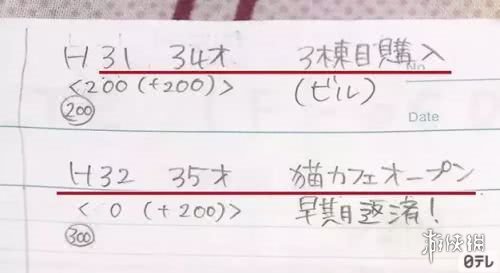 H31 34才 3棟目購入
No
<200 (+200)> (ビル)
200
Date
H32 35才 猫カフェオープン
< 0 (+200)> 早期返済!
300
游侠网
日テレ